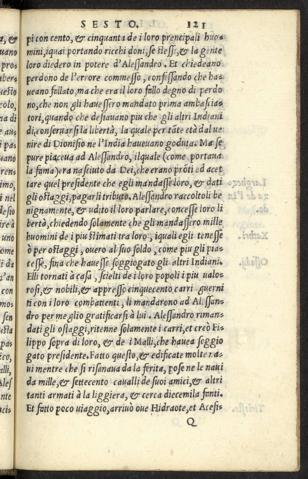 SESTO. 121
pi con cento, & cinquanta de i loro prencipali huo=
mini, iquai portando ricchi doni, se stessi, & la gente
loro diedero in potere d'Alessandro. Et chiedeano
perdono de l'errore commesso, confissando che ha=
ueano fallato, ma che era il loro fallo degno di perdo
no, che non gli hauessero mandato prima ambascia=
tori, quando che desiauano piu che gli altri Indiani
di conseruarsi la libertà, la quale per tãte età dal ue
nire di Dionisio ne l'India haueuano goduta. Ma se
pure piaceua ad Alessandro, ilquale (come portaua
la fama) era nasciuto da Dei, che erano prõti ad acet
tare quel presidente che egli mandasse loro, & dati
gli ostaggi, pagarli tributo. Alessandro raccoltoli be
nignamente, & udito il loro parlare, concesse loro li
bertà, chiedendo solamente che gli mandassero mille
huomini de i piu stimati tra loro, iquali egli tenesse
ò per ostaggi, ouero al suo soldo, come piu gli piac=
cesse, fina che hauesse soggiogato gli altri Indiani.
Elli tornati à casa, scielti de i loro popoli i piu ualo=
rosi, & nobili, & appresso cinquecento carri guerni
ti con i loro combattenti, li mandarono ad Alissan=
dro per meglio gratificarsi à lui. Alessandro riman=
dati gli ostaggi, ritenne solamente i carri, et creò Fi=
lippo sopra di loro, & de i Malli, che hauea soggio
gato presidente. Fatto questo, & edificate molte na=
ui mentre che si risanaua da la ferita, pose ne le naui
da mille, & settecento caualli de suoi amici, & altri
tanti armati à la liggiera, & cerca diecemila fanti.
Et fatto poco uiaggio, arriuò oue Hidraote, et Acesi=
Q